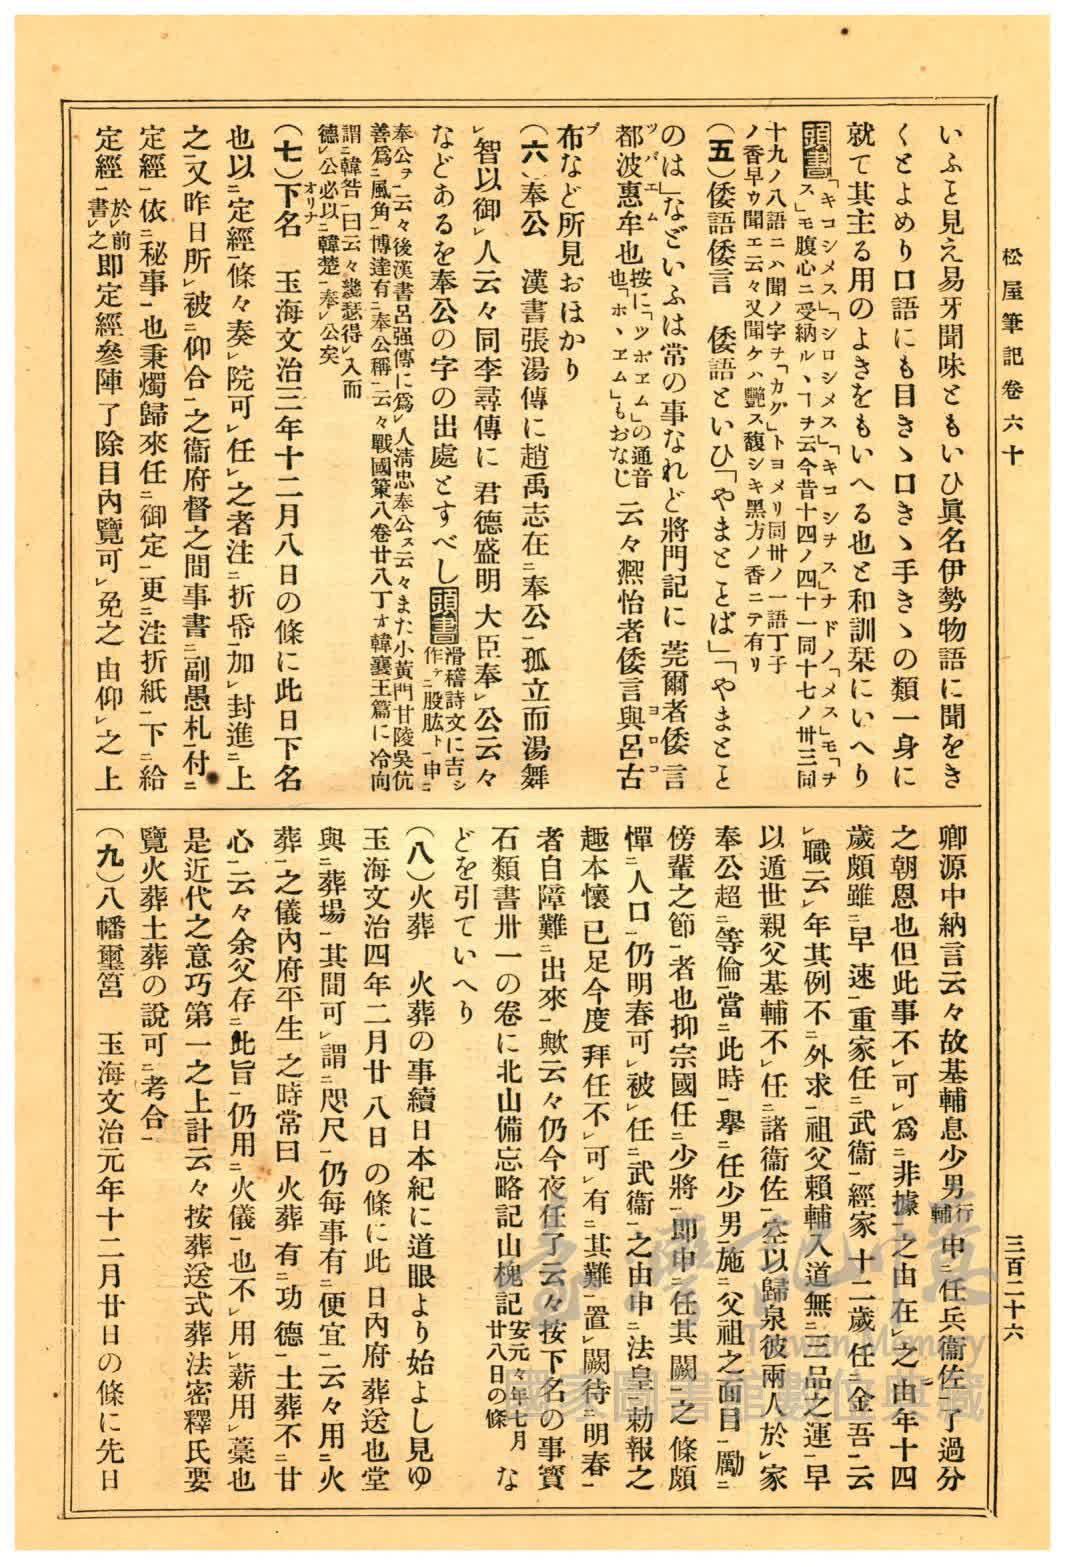 松屋筆記卷六十
三百二十六
いふと見え易牙聞味ともいひ眞名伊勢物語に聞をき
くとよめり口語にも目きゝ口きゝ手きゝの類一身に
就て其主る用のよきをもいへる也と和訓栞にいへり
頭書「キコシメス」「シロシメス」「キコシヲス」ナドノ「メス」モ「ヲ
ス」モ腹心ニ受納ルヽヿヲ云今昔十四ノ四十一同十七ノ卅三同
十九ノ八語ニハ聞ノ字ヲ「カグ」トヨメリ同卅ノ一語丁子
ノ香早ウ聞エ云々又聞ケハ艷ス馥シキ黑方ノ香ニテ有リ
(五)倭語倭言 倭語といひ「やまとことば」「やまとこと
のは」などいふは常の事なれど將門記に莞爾者倭言
都波惠牟也按に「ツボヱム」の通音也「ホヽヱム」もおなじ云々凞怡者倭言與呂古
布など所見おほかり
(六)奉公 漢書張湯傳に趙禹志在ニ奉公一孤立而湯舞
レ智以御レ人云々同李尋傳に君德盛明大臣奉レ公云々
などあるを奉公の字の出處とすべし頭書滑稽詩文に吉シ作テニ股肱ト一申ニ
奉公ヲ一云々後漢書呂强傳に爲レ人淸忠奉公ス云々また小黃門甘陵吳伉
善爲ニ風角一博達有ニ奉公稱一云々戰國策八卷廿八丁ォ韓襄王篇に冷向
謂ニ韓咎一曰云々幾瑟得レ入而
德レ公必以ニ韓楚一奉レ公矣
(七)下名 玉海文治三年十二月八日の條に此日下名
也以ニ定經一條々奏レ院可レ任レ之者注ニ折帋一加レ封進ニ上
之一又昨日所レ被ニ仰合一之衞府督之間事書ニ副愚札一付ニ
定經一依ニ秘事一也秉燭歸來任ニ御定一更ニ注折紙一下ニ給
定經一於レ前書レ之即定經參陣了除目內覽可レ免之由仰レ之上
卿源中納言云々故基輔息少男行輔申ニ任兵衞佐一了過分
之朝恩也但此事不レ可レ爲ニ非據一之由在レ之由年十四
歲頗雖ニ早速一重家任ニ武衞一經家十二歲任ニ金吾一云
レ職云レ年其例不ニ外求一祖父賴輔入道無ニ三品之運一早
以遁世親父基輔不レ任ニ諸衞佐一空以歸泉彼兩人於レ家
奉公超ニ等倫一當ニ此時一擧ニ任少男一施ニ父祖之面目一勵ニ
傍輩之節一者也抑宗國任ニ少將一即申ニ任其闕一之條頗
憚ニ人口一仍明春可レ被レ任ニ武衞一之由申ニ法皇一勅報之
趣本懷已足今度拜任不レ可レ有ニ其難一置レ闕待ニ明春一
者自障難ニ出來一歟云々仍今夜任了云々按下名の事寳
石類書卅一の卷に北山備忘略記山槐記安元々年七月廿八日の條な
どを引ていへり
(八)火葬 火葬の事續日本紀に道眼より始よし見ゆ
玉海文治四年二月廿八日の條に此日內府葬送也堂
與ニ葬場一其間可レ謂ニ咫尺一仍每事有ニ便宜一云々用ニ火
葬一之儀內府平生之時常曰火葬有ニ功德一土葬不ニ甘
心一云々余父存ニ此旨一仍用ニ火儀一也不レ用レ薪用レ藁也
是近代之意巧第一之上計云々按葬送式葬法密釋氏要
覽火葬土葬の說可ニ考合一
(九)八幡璽筥 玉海文治元年十二月廿日の條に先日
臺灣記憶
Taiwan Memory
國家圖書館數位典藏